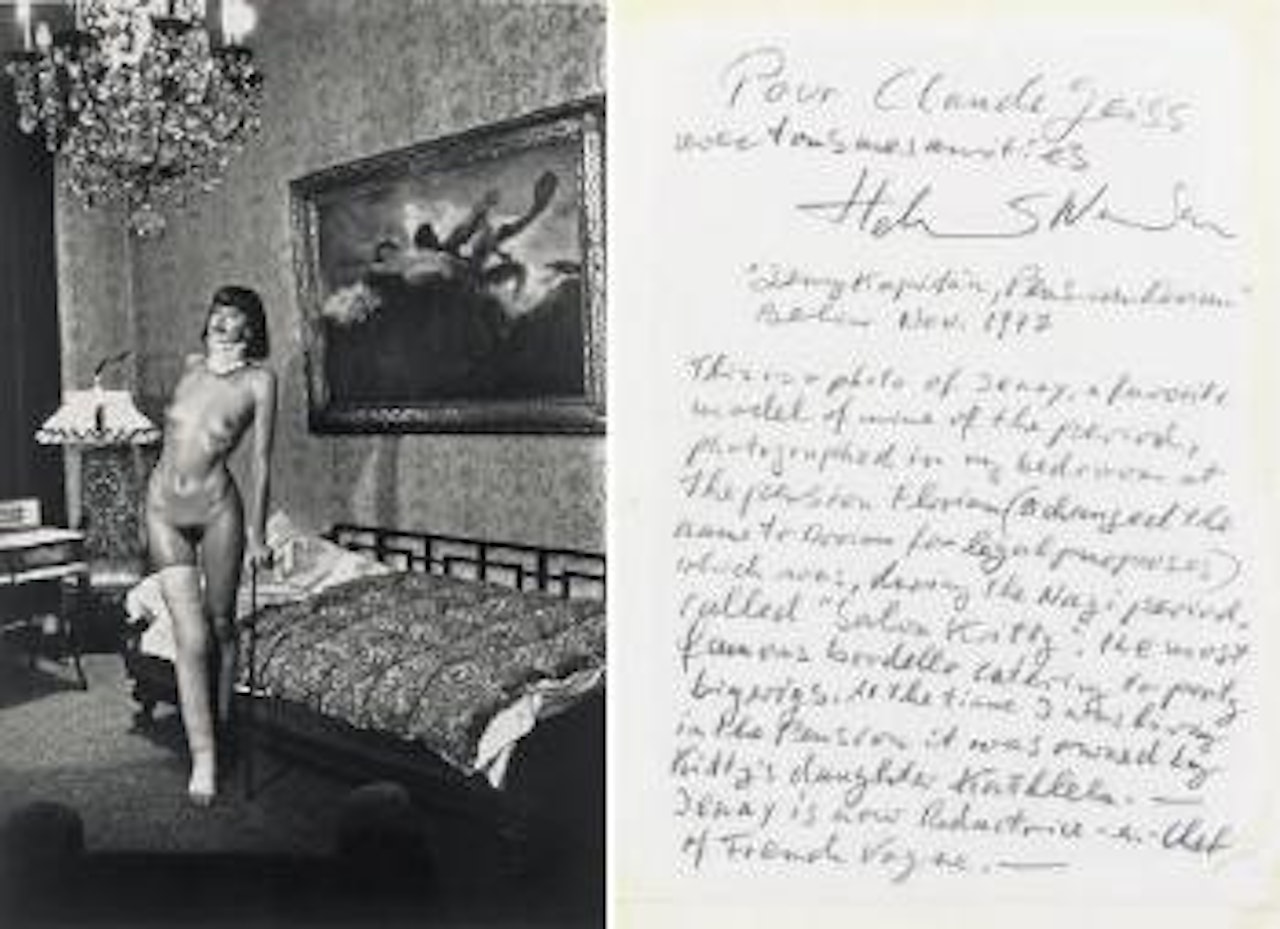 Pour Claude Geiss
avec tous mes amitiés
Helmut Newton
"Jenny Kapitän, Pension Dorian"
Berlin Nov. 1977
This is a photo of Jenny, a favorite
model of mine of the period,
photographed in my bedroom at
the pension Florian (I changed the
name to Dorian for legal purposes)
which was, during the Nazi period,
called "Salon Kitty". the most
famous bordello catering to party
bigwigs. At the time I was living
in the Pension it was owned by
Kitty's daughter Kathleen. —
Jenny is now Rédactrice-en-chef
of French Vogue. —